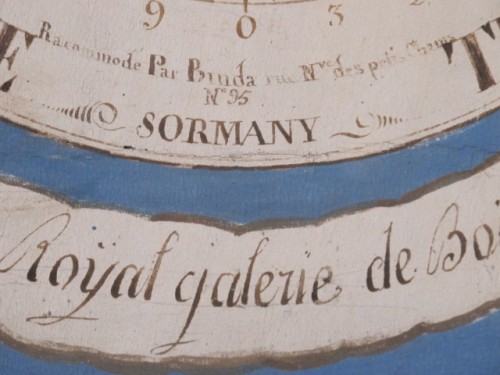 9 0 3 2
E T
Racommodé Par Binda rue Nve des petis Champs
No 95
SORMANY
Royal galerie de Boi